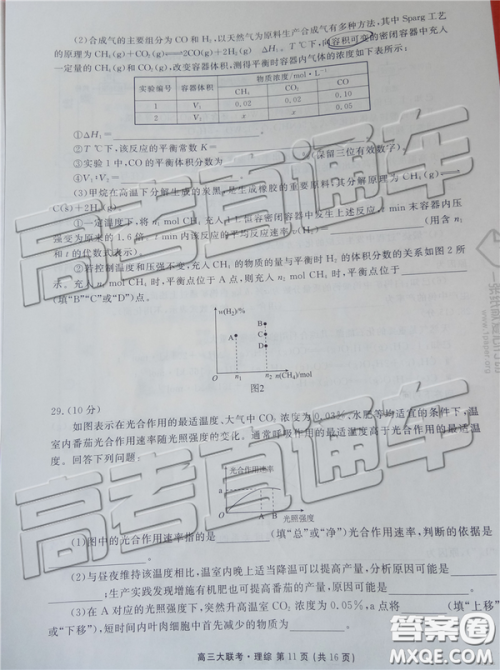 (2)合成气的主要组分为 CO 和 H₂,以天然气为原料生产合成气有多种方法,其中 Sparg 工艺
的原理为 CH₄(g)+CO₂(g)⇌2CO(g)+2H₂(g) ΔH₃。T ℃下,向容积可变的密闭容器中充入
一定量的 CH₄(g)和 CO₂(g),改变容器体积,测得平衡时容器内气体的浓度如下表所示:
实验编号 容器体积 物质浓度/mol·L⁻¹
CH₄ CO₂ CO
1 V₁ 0.02 0.02 0.10
2 V₂ x x 0.05
①ΔH₃=
②T ℃下,该反应的平衡常数 K=
③实验 1 中,CO 的平衡体积分数为 (保留三位有效数字)。
④V₁:V₂=
(3)甲烷在高温下分解生成的炭黑,是生成橡胶的重要原料,其分解原理为 CH₄(g)
C(s)+2H₂(g)。
①一定温度下,将 n₁ mol CH₄ 充入 恒容密闭容器中发生上述反应, min 末容器内压
强变为原来的 1.6 倍, min 内该反应的平均反应速率 v(H₂)= (用含 n₁
和 的代数式表示)
②若控制温度和压强不变,充入 CH₄ 的物质的量与平衡时 H₂ 的体积分数的关系如图 2 所
示。充入 n₁ mol CH₄ 时,平衡点位于 A 点,则充入 n₂ mol CH₄ 时,平衡点位于
(填“B”“C”或“D”)点。
v(H₂)/%
B
A
C
D
n₁ n₂ n(CH₄)/mol
图2
29.(10 分)
如图表示在光合作用的最适温度、大气中 CO₂ 浓度为 0.03%、水肥等均适宜的条件下,温
室内番茄光合作用速率随光照强度的变化。通常呼吸作用的最适温度高于光合作用的最适温
度。回答下列问题:
光合作用速率
a
A B 光照强度
(1)图中的光合作用速率指的是 (填“总”或“净”)光合作用速率,判断的依据是
。
(2)与昼夜维持该温度相比,温室内晚上适当降温可以提高产量,分析原因可能是
;生产实践发现增施有机肥也可提高番茄的产量,原因可能是 。
(3)在 A 对应的光照强度下,突然升高温室 CO₂ 浓度为 0.05%,a 点将 (填“上移”
或“下移”),短时间内叶肉细胞中
高三大联考·理综 第 11 页(共 16 页)
高考直通车
高考直通车
答案圈
MXQE.COM